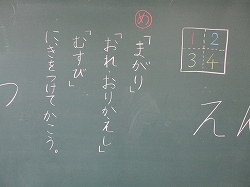 1 2
3 4
え
め
「まがり」
「おれ・おりかえし」
「むすび」
にきをつけてかこう。
つ